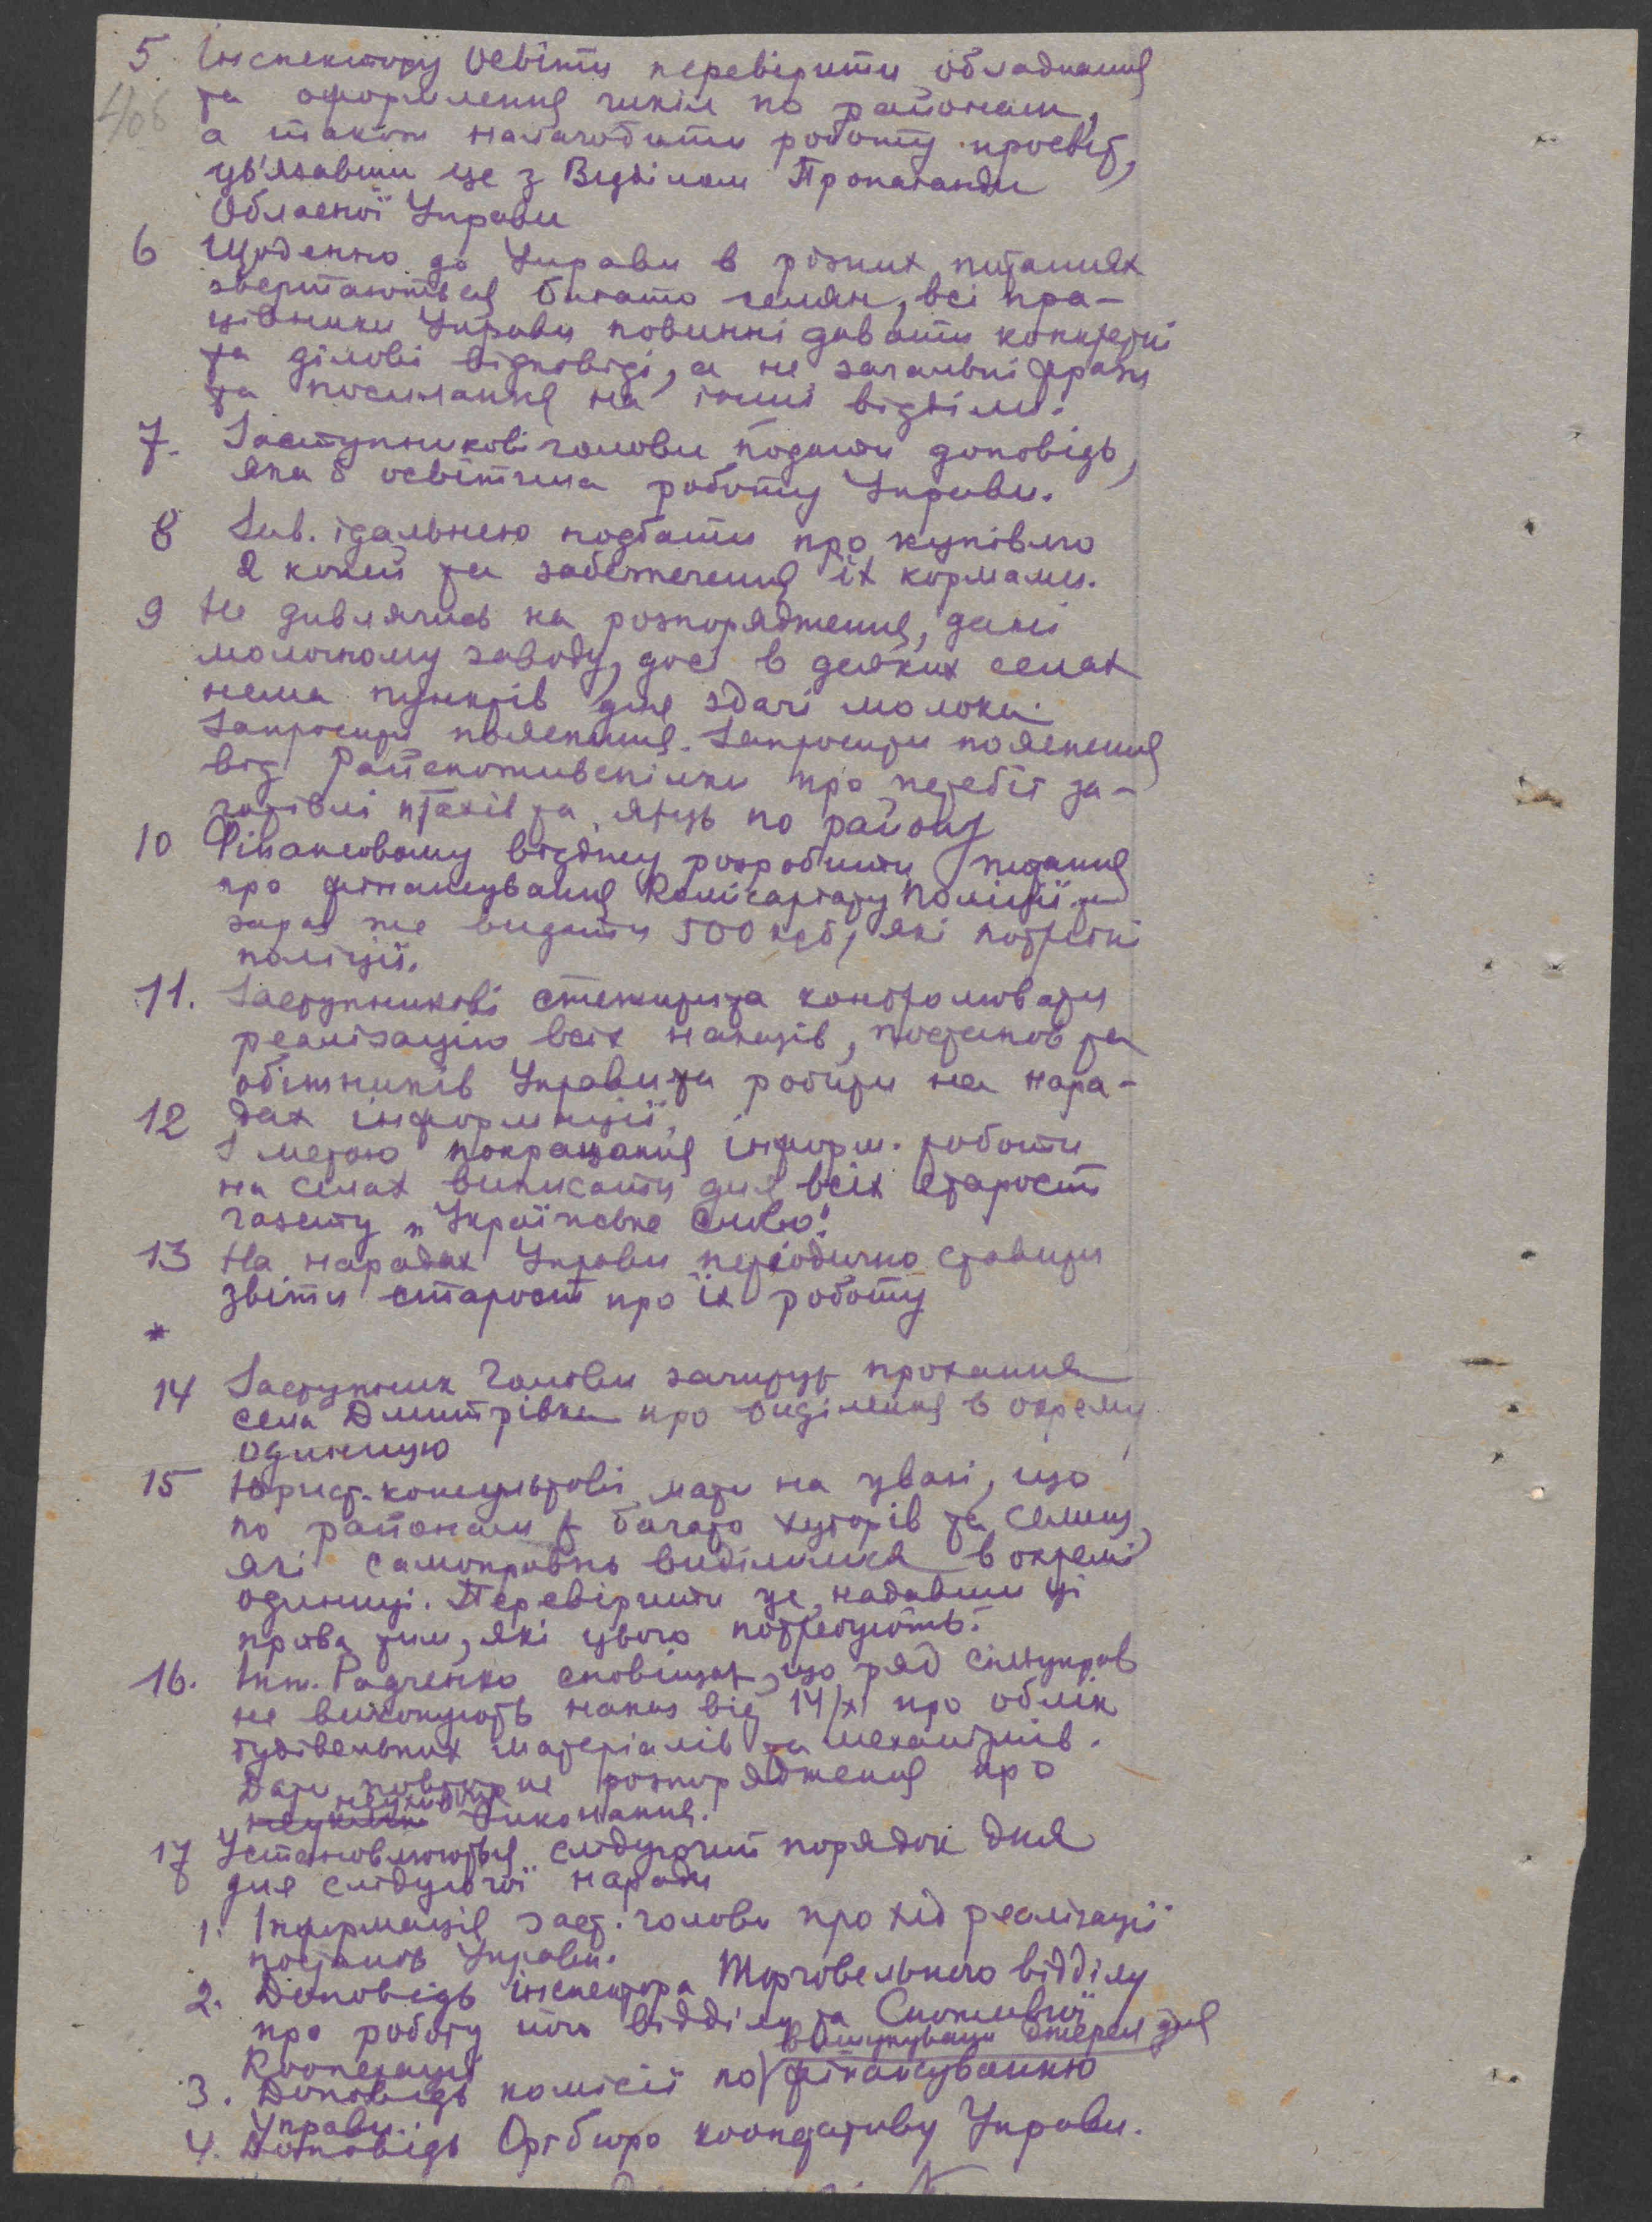 5. Інспектору Освіти перевірити обладнання
406
та оформлення шкіл по районам,
а також налагодити роботу просвіт,
ув'язавши це з Відділом Пропаганди
Обласної Управи
6 Щоденно до Управи в різних питаннях
звертаються багато селян, всі пра-
цівники Управи повинні давати конкретні
та ділові відповіді, а не загальні фрази
та посилання на інші відділи.
7. Заступникові голови подати доповідь,
яка б освітила роботу Управи.
8 Зав. їдальнею подбати про купівлю
2 коней та забезпечення їх кормами.
9 Не дивлячись на розпорядження, дані
молочному заводу, досі в деяких селах
нема пунктів для здачі молока.
Запросити пояснення. Запросити пояснення
від Райспоживспілки про перебіг за-
готівлі птахів та яєць по району
10 Фінансовому відділу розробити питання
про фінансування Комісаріату Поліції та
зараз же видати 500 крб, які потрібні
поліції.
11. Заступникові стежити та контролювати
реалізацію всіх наказів, постанов та
обіжників Управи та робити на нара-
12 дах інформації.
З метою покращання інформ. роботи
на селах виписати для всіх старост
газету „Українське Слово".
13 На нарадах Управи періодично ставити
звіти старост про їх роботу
*
14 Заступник Голови зачитує прохання
села Дмитрівка про виділення в окрему
одиницю
15 Юрист-консультові мати на увазі, що
по районам є багато хуторів та селищ,
які самоправно виділилися в окремі
одиниці. Перевірити це, надавши ці
права тим, які цього потребують.
16. Інж. Радченко сповіщає, що ряд сільуправ
не виконують наказ від 14/XI про облік
будівельних матеріалів та механізмів.
Дати повторне розпорядження про
неухильне
виконання.
17 Установлюється слідуючий порядок дня
для слідуючої наради
1. Інформація заст. голови про хід реалізації
постанов Управи.
2. Доповідь інспектора Торговельного відділу
про роботу його відділу та Споживчої
Кооперації
вишукуванню джерел для
3. Доповідь комісії по фінансуванню
Управи.
4. Доповідь Оргбюро кооперативу Управи.